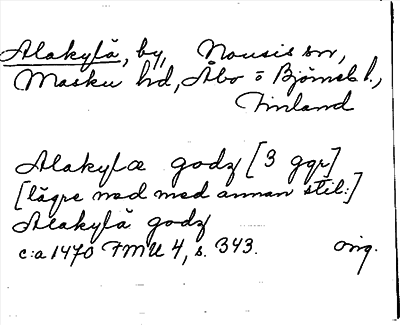 Alakylä, by, Nousis sn,
Masku hd, Åbo o Björneb l.,
Finland
Alakylæ godz [3 ggr]
[lägre ned med annan stil:]
Alakylä godz
c:a 1470 FMU 4, s. 343. orig.